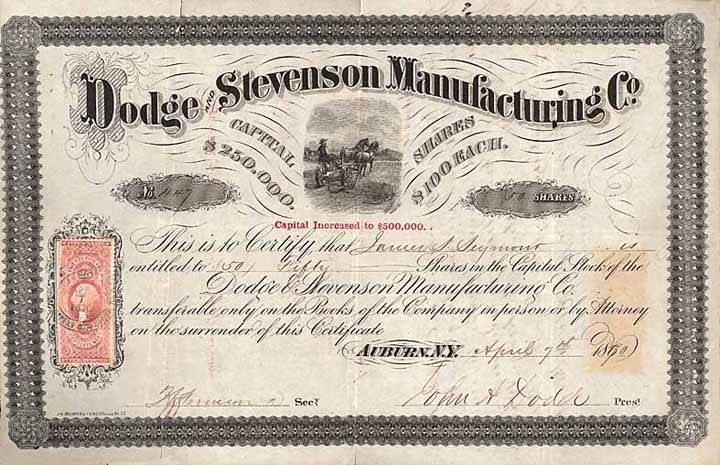 Dodge AND Stevenson Manufacturing Co.
CAPITAL $250,000.
SHARES $100 EACH.
No. 447
50 SHARES
Capital Increased to $500,000.
This is to Certify that James S. Seymour is
entitled to (50) Fifty Shares in the Capital Stock of the
Dodge & Stevenson Manufacturing Co.
transferable only on the Books of the Company in person or by Attorney
on the surrender of this Certificate
AUBURN, N.Y. April 7th 18
Secy
John A Dodge Prest